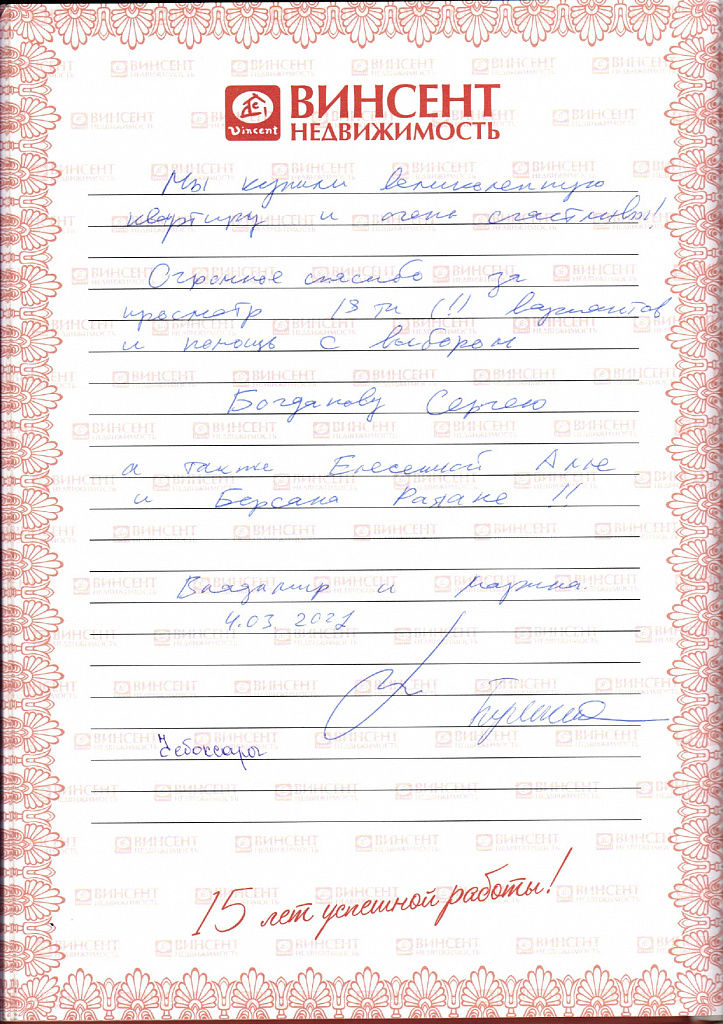 Vincent
ВИНСЕНТ
НЕДВИЖИМОСТЬ
Мы купили великолепную
квартиру и очень счастливы!!
Огромное спасибо за
просмотр 13 ти (!!) вариантов
и помощь с выбором
Богданову Сергею
а также Елесиной Алле
и Берсана Раяне !!
Владимир и Марина.
4.03.2021
Чебоксары
15 лет успешной работы!